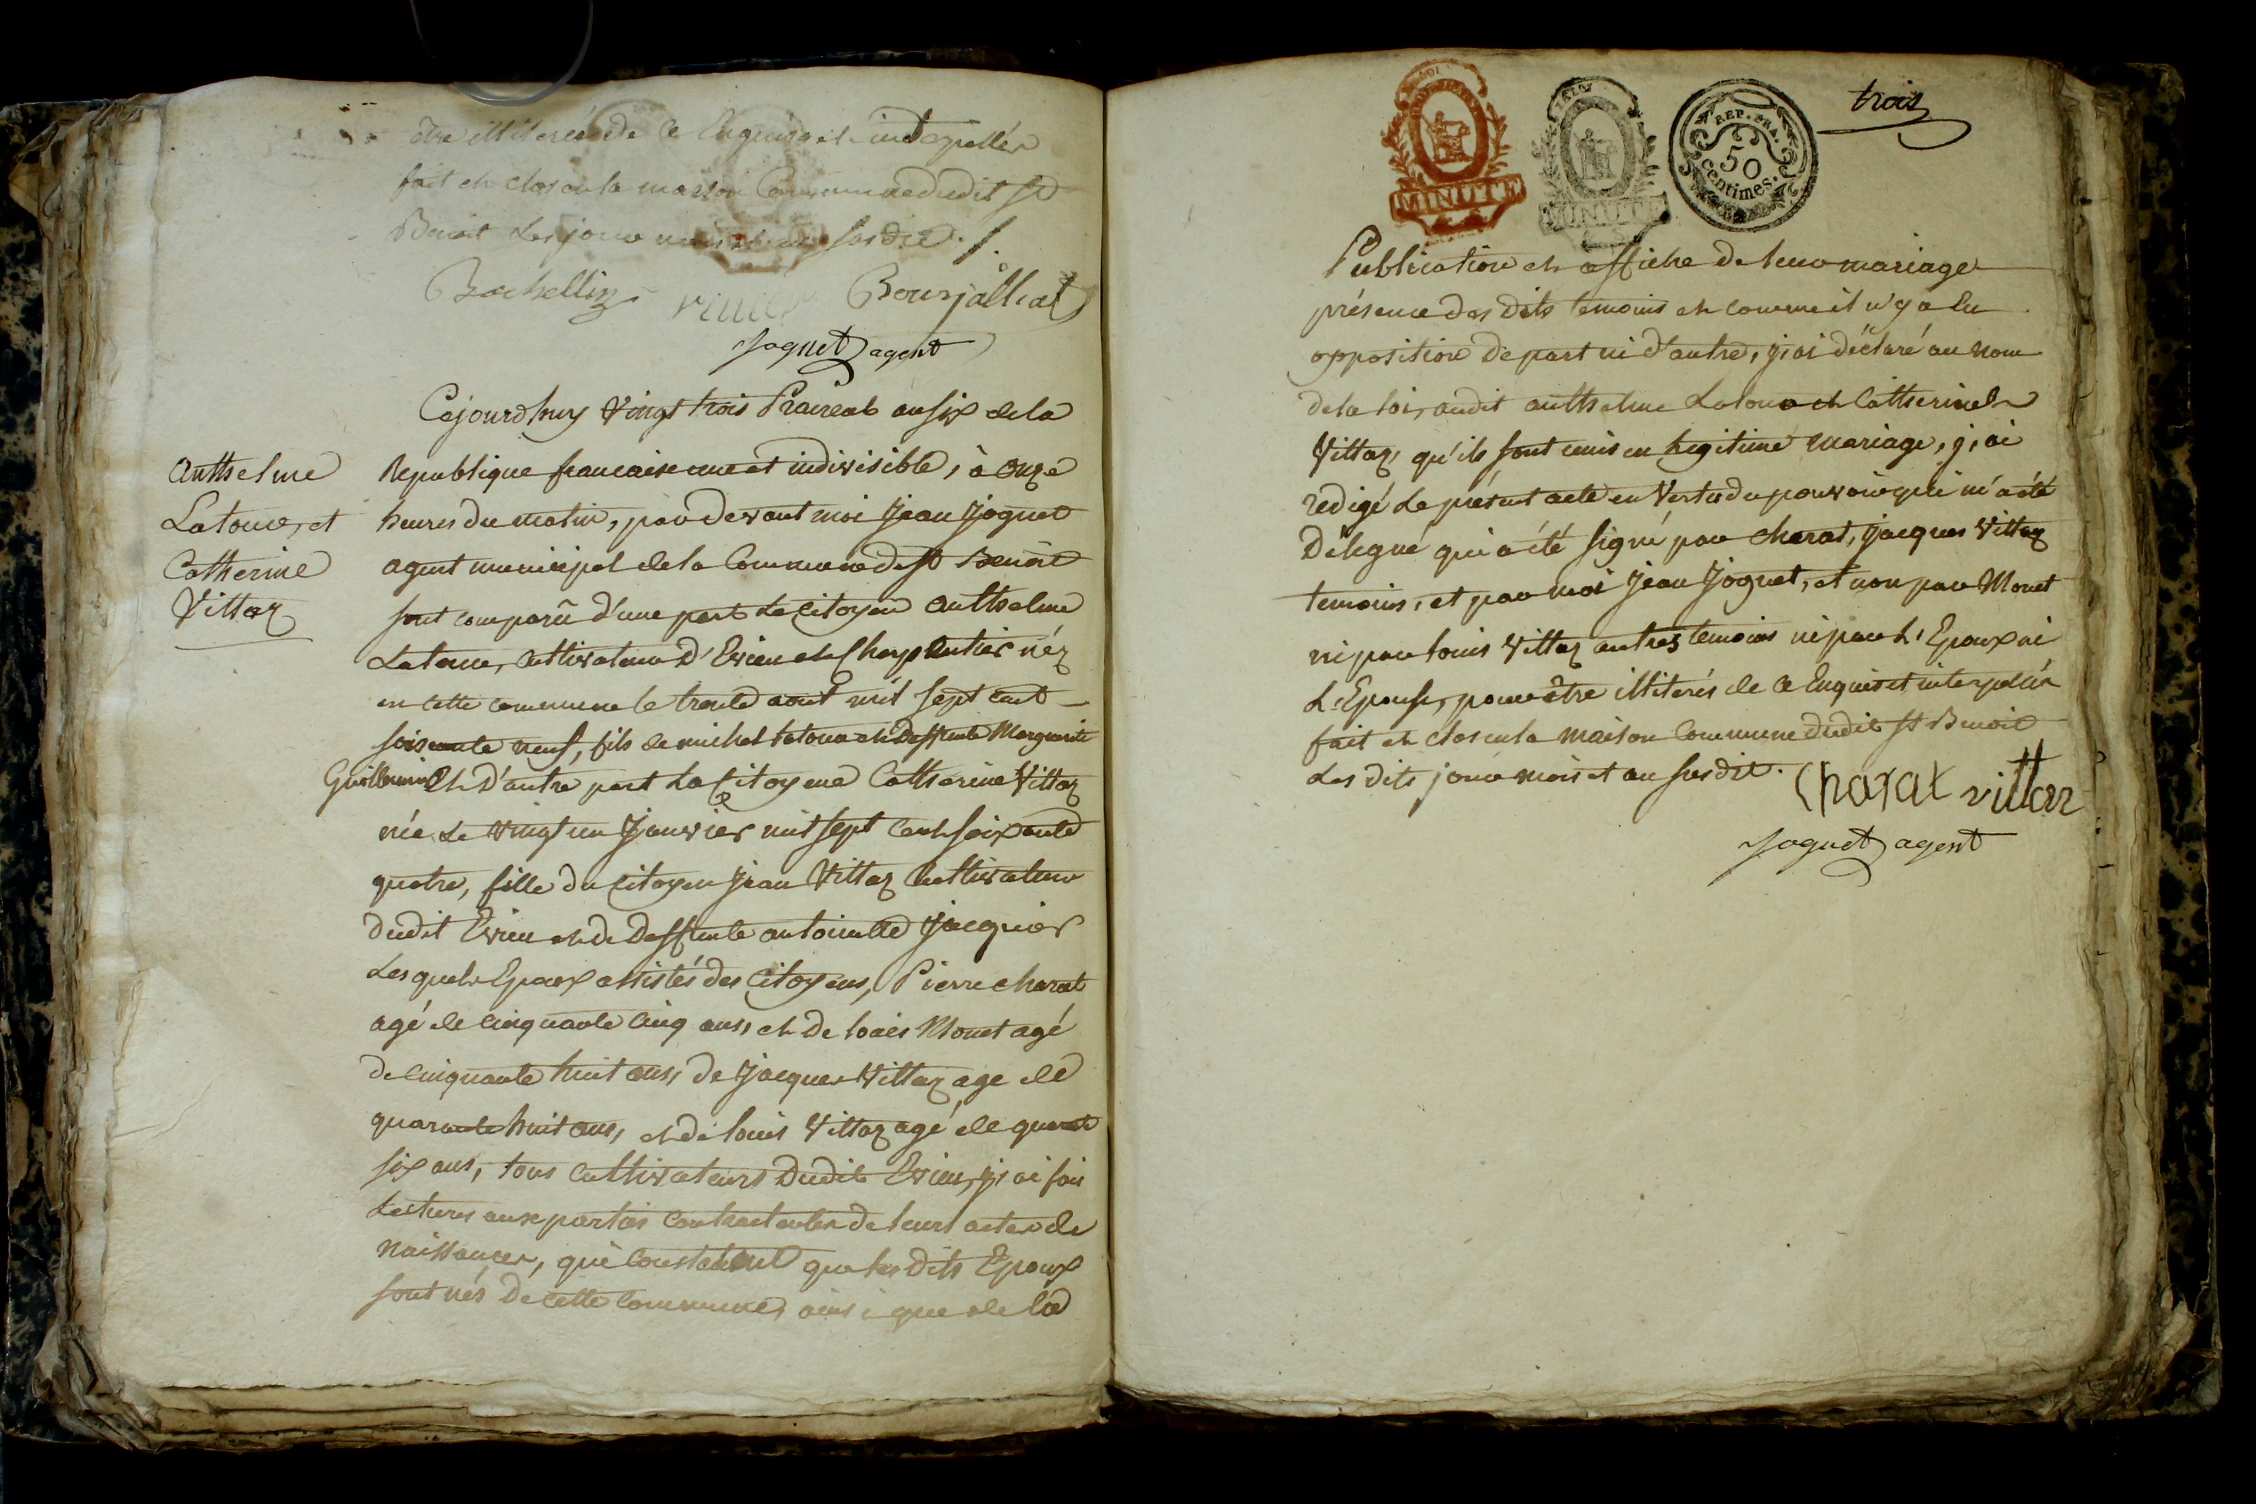 être illiterés de ce Enquis et interpellés
fait et clos en la maison Commune dudit St
Benoit Les jour mois et an susdit ./.
Bachellin Bourjaillat
Joguet agent
Cejourd'huy Vingt trois Prairéal an six de la
Anthelme
Latour, et
Catherine
Vittoz
Republique francaise une et indivisible, à onze
heures du matin, par devant moi Jean Joguet
agent municipal de la Commune de St Benoit
sont comparû d'une part Le Citoyen Anthelme
Latour, Cultivateur D'Evieu et Charpentier néz
en cette commune le trente aout mil sept cent
soixante neuf, fils de michel Latour et Deffunte Marguerite
Guillermin Et D'autre part La Citoyene Catherine Vittoz
née Le Vingt un Janvier mil sept cent soixante
quatre, fille du Citoyen Jean Vittoz Cultivateur
dudit Evieu et de Deffunte antoinette Jacquier
Lesquels Epoux assistés des Citoyens, Pierre charat
agé de cinquante cinq ans, et De Louis Monet agé
De cinquante huit ans, De Jacques Vittoz age de
quarante huit ans, et de Louis Vittoz agé de quarante
six ans, tous cultivateurs Dudit Evieu, j'ai fait
Lectures aux parties contractantes de leurs actes de
Naissances, qui Constatent que les Dits Epoux
sont nés De cette Commune, ainsi que de la
trois
MINUTE
MINUTE
REP. FRA.
50
centimes.
Publication et affiche De leur mariage
présence des Dits temoins et comme il n'y a Eu
opposition De part ni d'autre, j'ai déclaré au Nom
De la Loi, audit anthelme Latour et Catherine
Vittoz, qu'ils sont unis en Legitime mariage, j'ai
redigé Le présent acte en Vertu du pouvoir qui m'a été
Délegué qui a été signé par charat, Jacques Vittoz
temoins, et par moi Jean Joguet, et non par Monet
ni par Louis Vittoz autres temoins ni par L'Epoux ni
L'Epouse, pour être illiterés de ce Enquis et interpellés
fait et clos en la maison Commune dudit St Benoit
Les dits jour mois et an susdit. Charat vittoz
Joguet agent